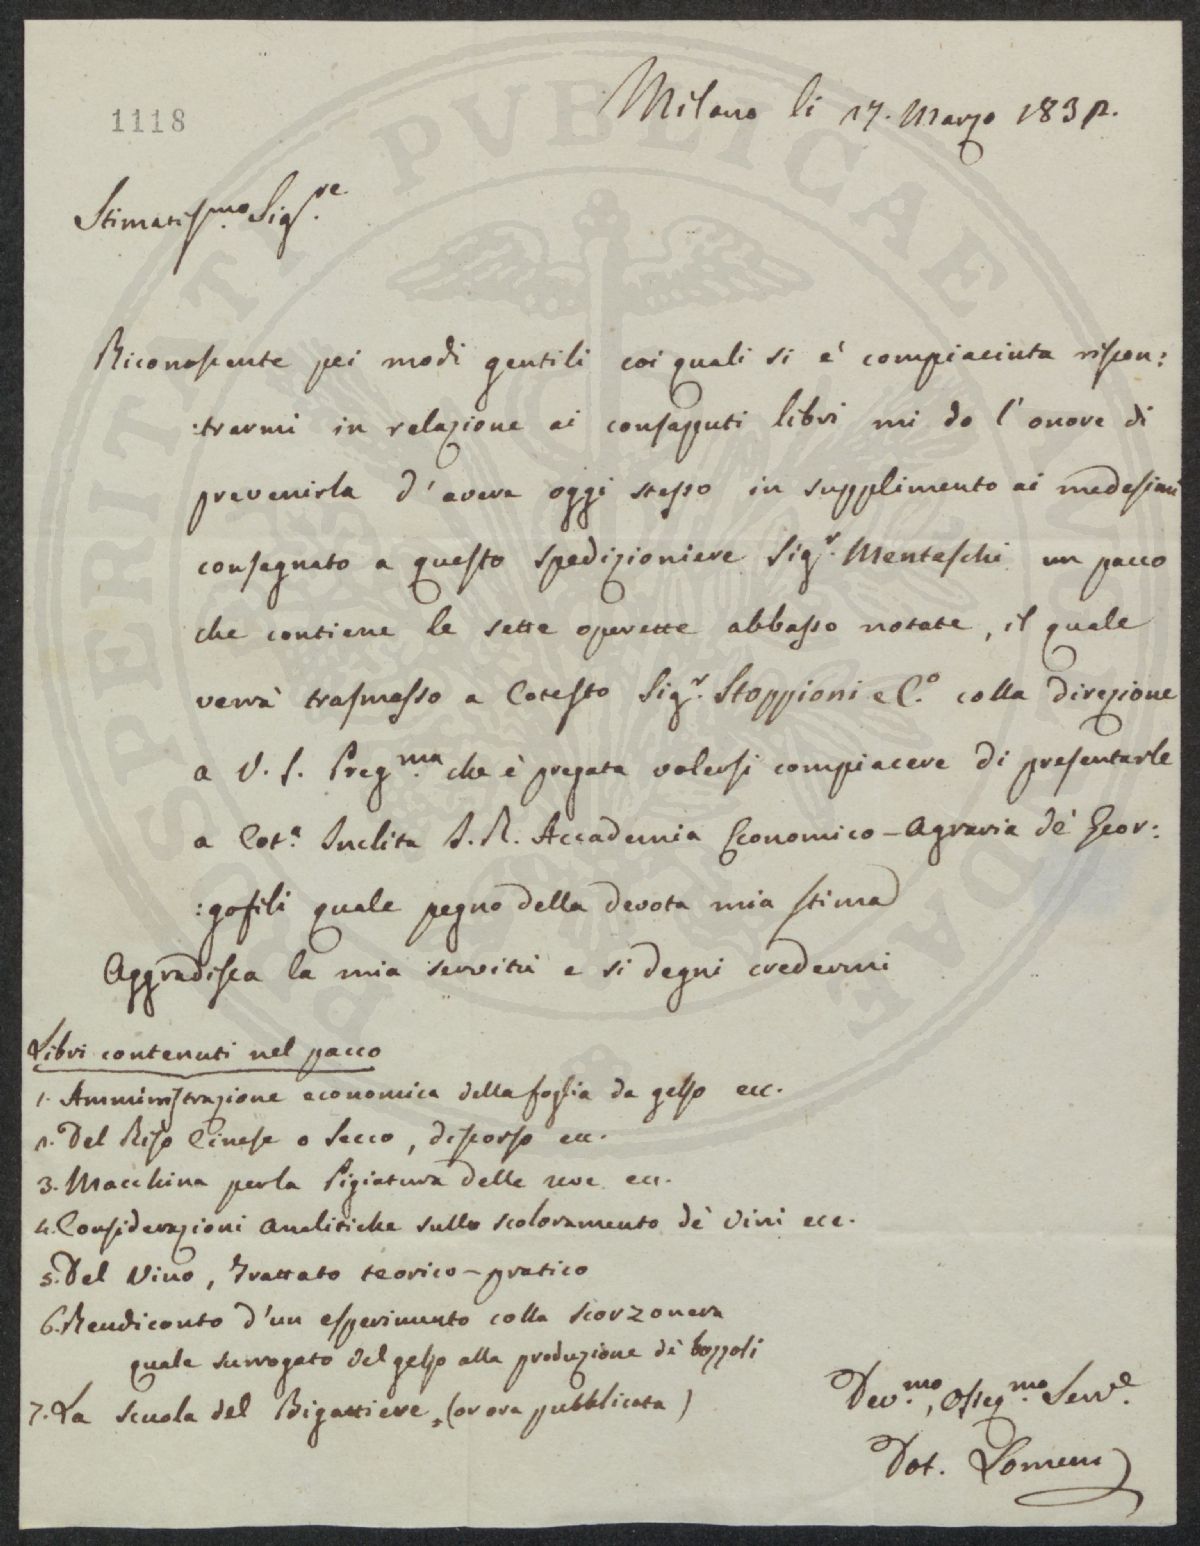 1118
Milano li 17. Marzo 1832.
Stimatissmo. Sigre.
Riconoscente pei modi gentili coi quali si è compiaciuta riscon:
:trarmi in relazione ai consaputi libri mi do l'onore di
prevenirla d'avere oggi stesso in supplimento ai medesimi
consegnato a questo spedizioniere Sigr. Menteschi un pacco
che contiene le sette operette abbasso notate, il quale
verrà trasmesso a Cotesto Sigr. Stoppioni e Co. colla direzione
a V. S. Pregma. che è pregata volersi compiacere di presentarle
a Cota. Inclita I. R. Accademia Economico-Agraria de' Geor:
:gofili quale pegno della devota mia stima
Aggradisca la mia servitù e si degni credermi
Libri contenuti nel pacco
1. Amministrazione economica della foglia da gelso ecc.
2. Del Riso Cinese o Secco, discorso ecc.
3. Macchina per la Pigiatura delle uve ecc.
4. Considerazioni analitiche sullo scoloramento de' Vini ecc.
5. Del Vino, Trattato teorico-pratico
6. Rendiconto d'un esperimento colla scorzonera
quale surrogato del gelso alla produzione de' bozzoli
7. La scuola del Bigattiere, (or ora pubblicata)
Devmo., Ossegmo. Serve.
Dot. Lomeni
PROSPERITATI PVBLICAE AVGENDAE